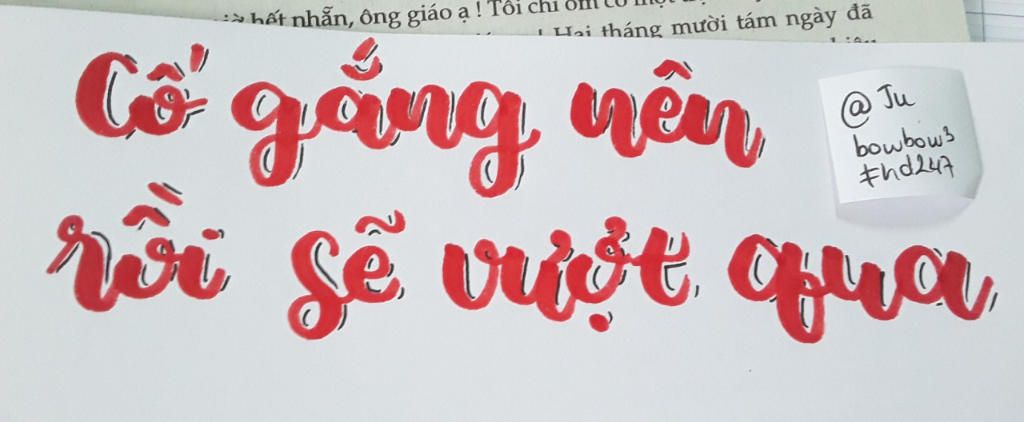 hết nhẫn, ông giáo ạ ! Tôi chỉ ốm có một
! Hai tháng mười tám ngày đã
Cố gắng nên
rồi sẽ vượt qua
@Ju
bowbow3
#hd247